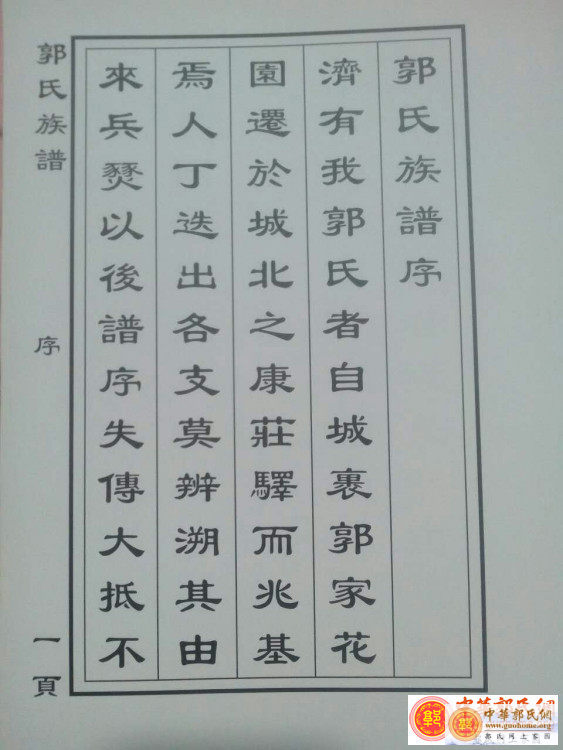 郭氏族譜序
濟有我郭氏者自城裏郭家花
園遷於城北之康莊驛而兆基
焉人丁迭出各支莫辨溯其由
來兵燹以後譜序失傳大抵不
郭氏族譜
序
一頁
中華郭氏網
www.guohome.org
郭氏網上家園